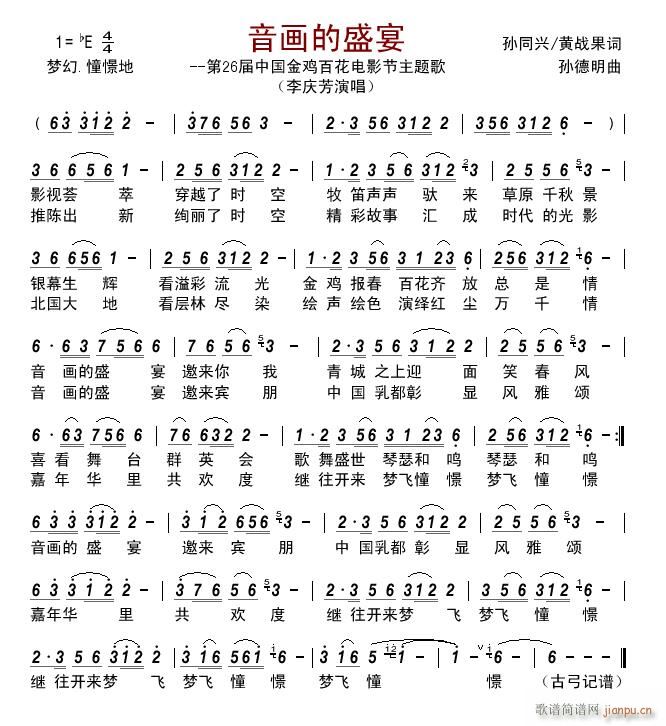 音画的盛宴
1=♭E 4/4
孙同兴/黄战果词
梦幻.憧憬地
--第26届中国金鸡百花电影节主题歌
孙德明曲
（李庆芳演唱）
( 63 312 2 - | 376 56 56 3 - | 2·3 56 312 2 - | 356 312 6 - )
3 6 6 5 6 1 - | 2 5 6 3 1 2 2 - | 1·2 6 5 6 3 1 2 3 | 2 5 5 6 3 -
影视荟 萃 穿越了 时 空 牧 笛声声 驮 来 草原 千秋 景
推陈出 新 绚丽了 时 空 精 彩故事 汇 成 时代 的光 影
3 6 656 1 - | 256 312 2 - | 1·2 56 3 1 23 6 | 256 312 6 -
银幕生 辉 看溢彩 流 光 金 鸡 报春 百花齐 放 总 是 情
北国大 地 看层林 尽 染 绘 声 绘色 演绎红 尘 万 千 情
6· 63 756 6 | 2·7 656 3 - | 2·3 56 312 2 | 2 5 556 3 -
音 画的盛 宴 邀来你 我 青 城 之上迎 面 笑 春 风
音 画的盛 宴 邀来宾 朋 中 国 乳都彰 显 风 雅 颂
6· 63 756 6 | 376 5 612 2 - | 1·2 56 3 1 23 6 | 256 312 6 - :‖
喜 看 舞 台 群 英 会 歌 舞盛世 琴瑟和 鸣 琴瑟 和 鸣
嘉 年 华 里 共 欢 度 继 往开来 梦飞憧 憬 梦飞 憧 憬
6·3 312 2 - | 3 12 656 3 - | 2·3 56 312 2 | 2 5 556 3 -
音画的 盛 宴 邀来 宾 朋 中 国乳都 彰 显 风 雅 颂
6 3 312 1 - | 3 76 56 3 - | 2·3 56 312 2 | 256 312 6 -
嘉年华 里 共 欢 度 继 往开来梦 飞 梦飞 憧 憬
2·3 56 312 2 | 256 561 6 - | 3 12 316 5 1 - | 1 - 6 - | 6 - - - ‖
继 往开来梦 飞 梦飞 憧 憬 梦飞 憧 憬 （古弓记谱）
歌谱简谱网
jianpu.cn